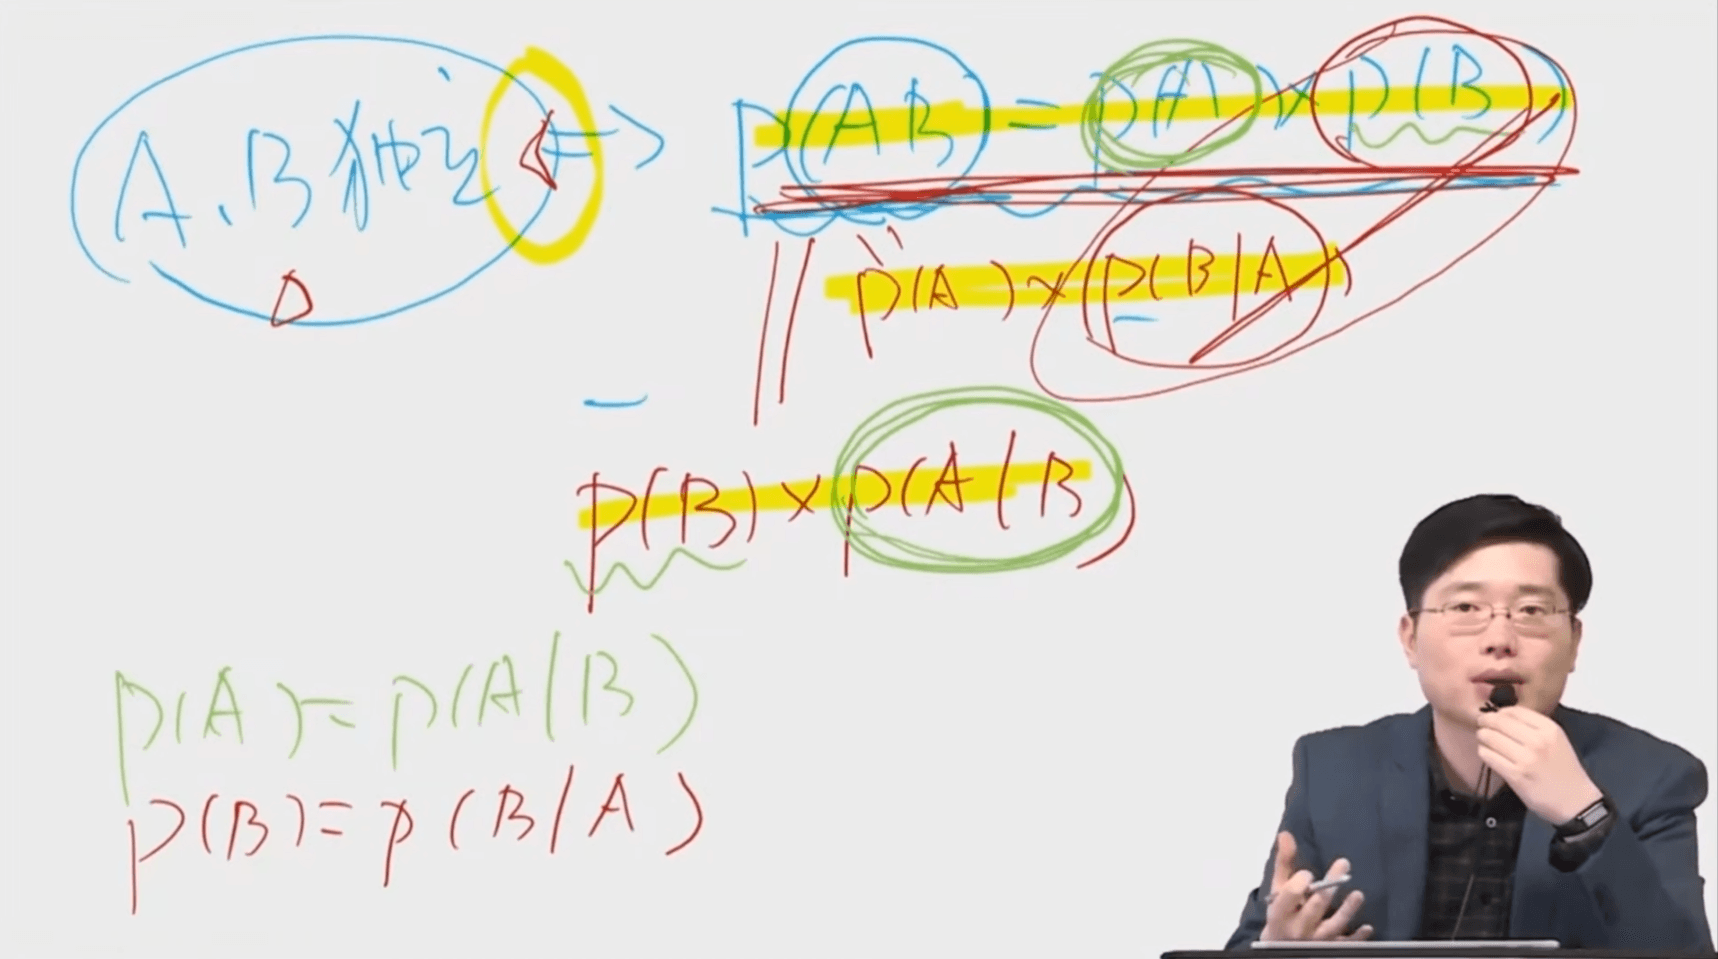 A、B独立 <=> P(AB) = P(A) × P(B)
P(A) × P(B|A)
P(B) × P(A|B)
P(A) = P(A|B)
P(B) = P(B|A)